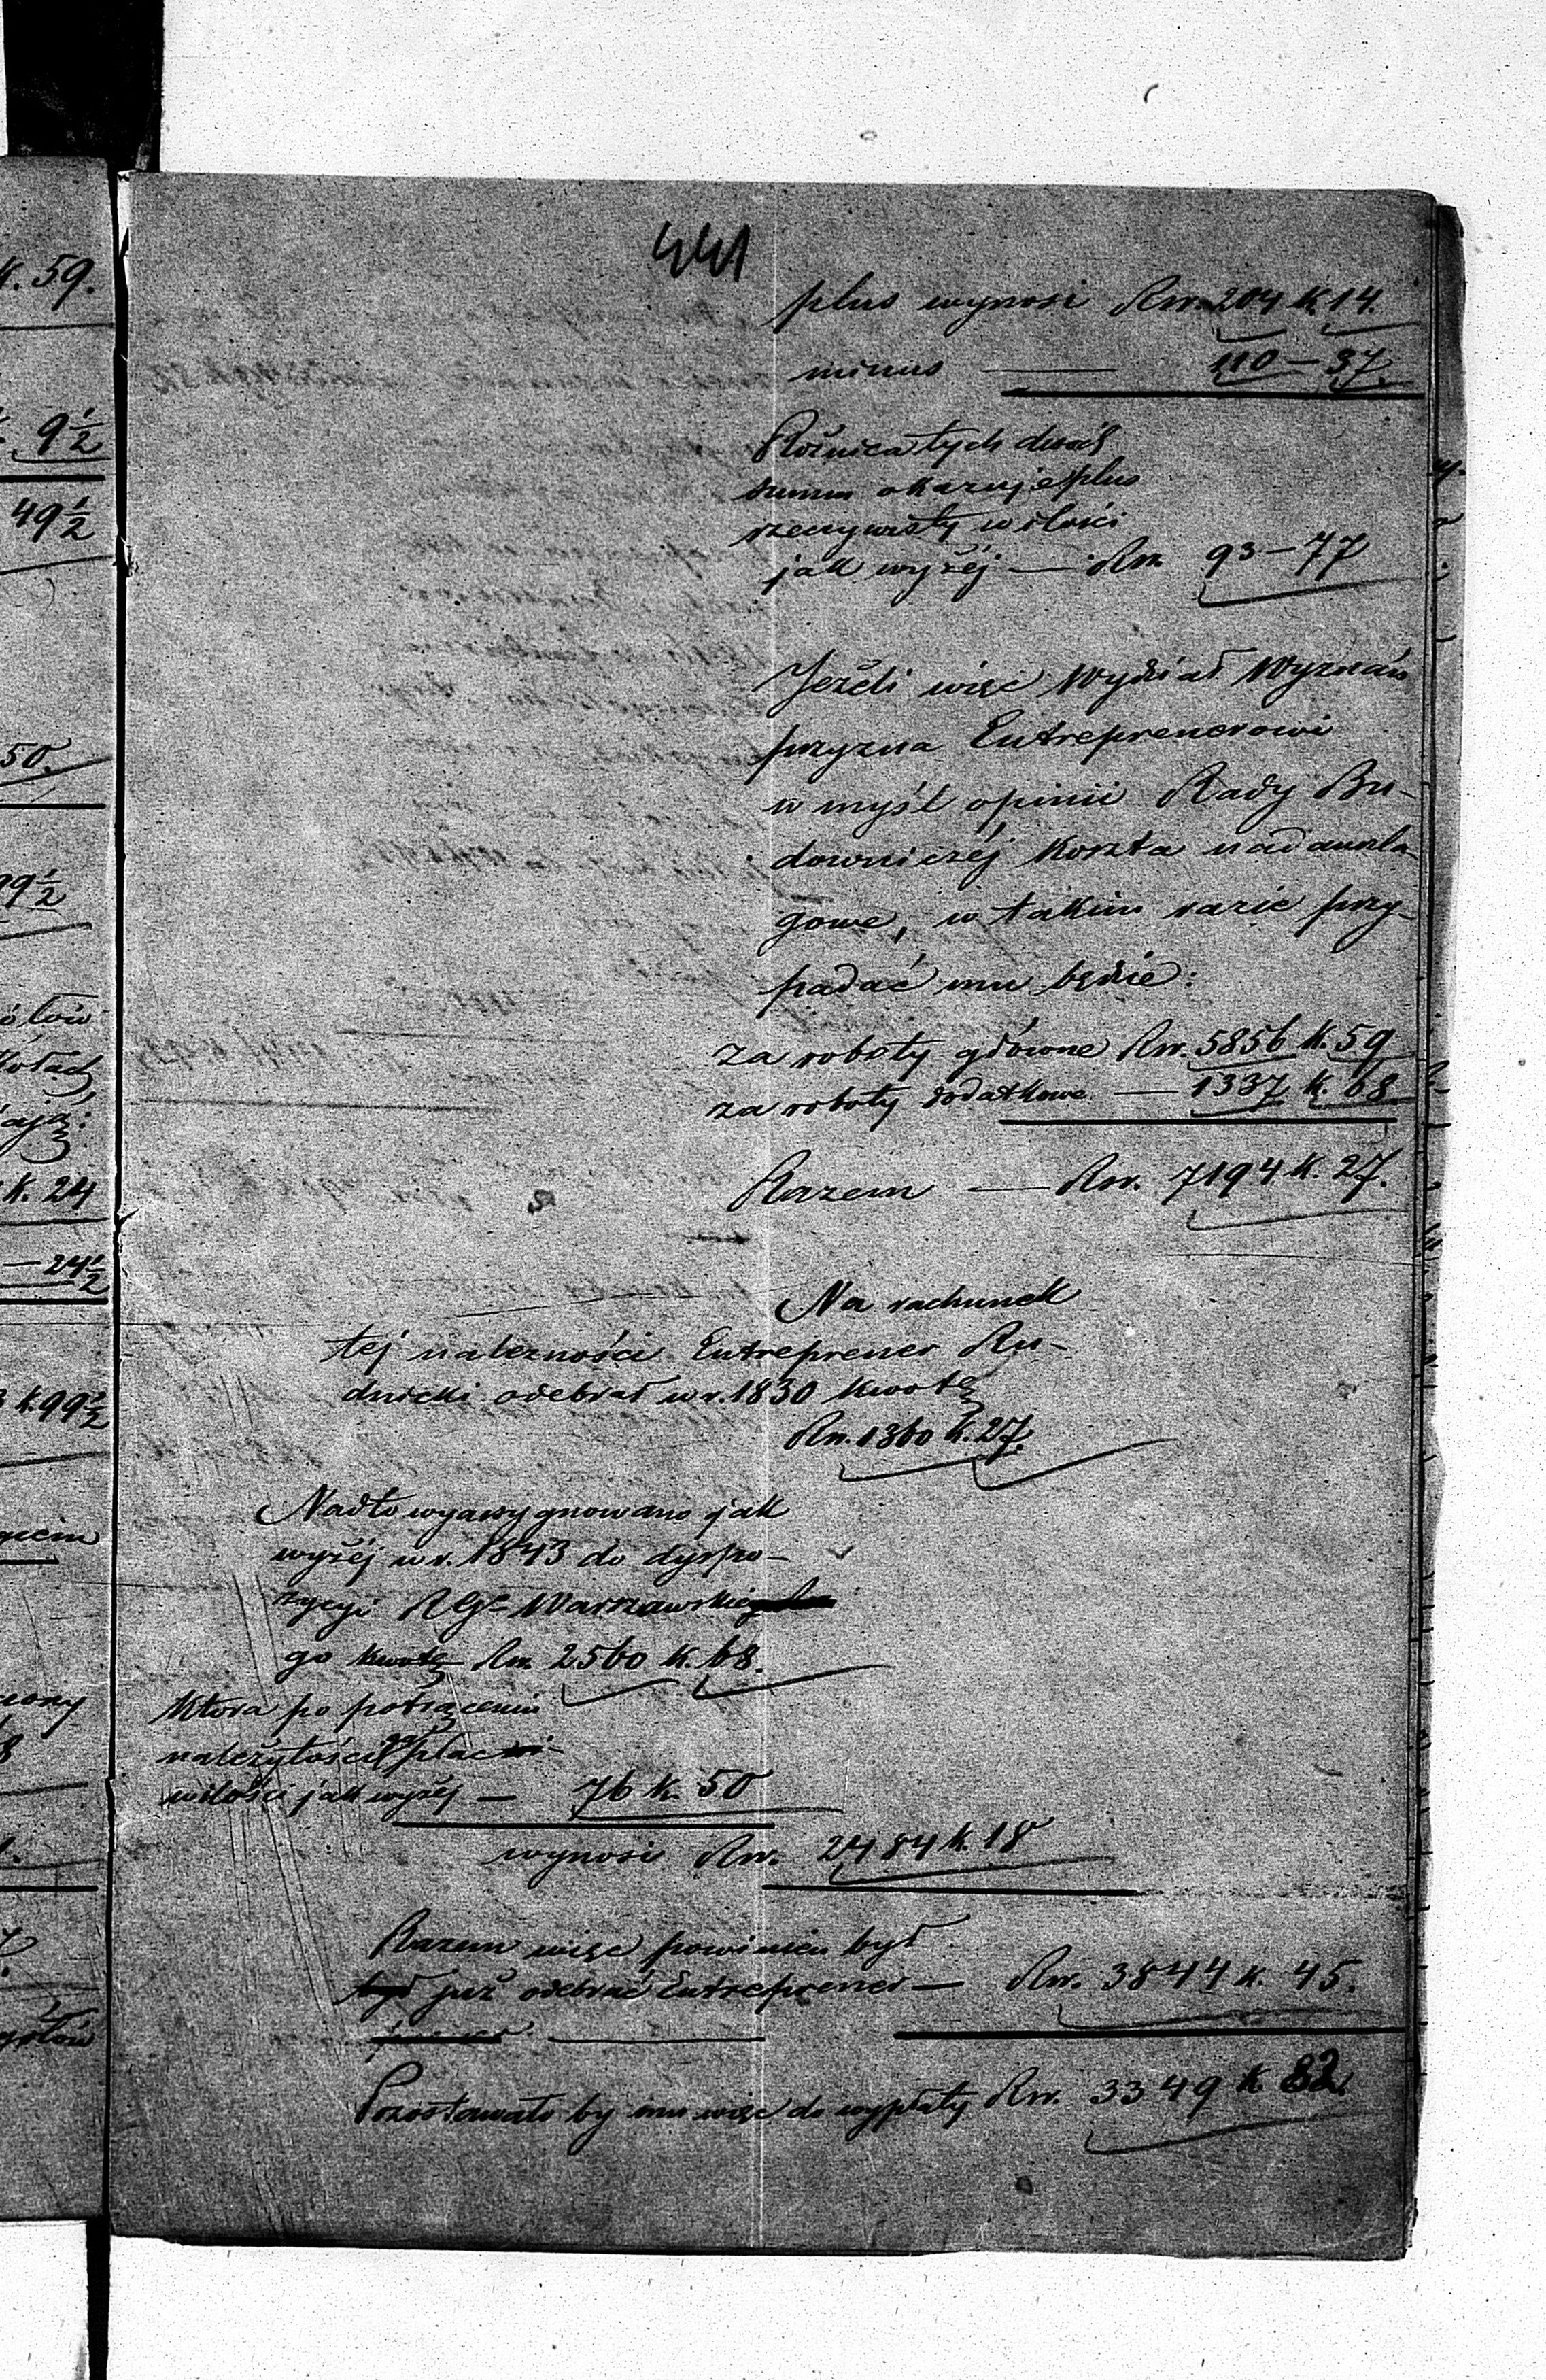 k. 59.
9½
49½
50.
99½
k. 24
— 24½
k. 99½
441
plus wynosi Rsr. 204 k. 14.
minus — 110 — 37.
Różnica tych dwóch
summ okazuje plus
rzeczywisty w ilości
jak wyżéj — Rsr. 93 — 77
Jeżeli więc Wydział Wyznań
przyzna Entreprenerowi
w myśl opinii Rady Bu-
downiczéj koszta nadanszla-
gowe, w takim razie przy-
padać mu będzie:
za roboty główne Rsr. 5856 k. 59
za roboty dodatkowe — 1337 k. 68
Razem — Rsr. 7194 k. 27.
Na rachunek
téj należności Entreprener Ru-
dnicki odebrał w r. 1830 kwotę
Rsr. 1360 k. 27.
Nadto wyassygnowano jak
wyżéj w r. 1843 do dyspo-
zycyi RGu Warszawskie
go kwotę Rsr. 2560 k. 68.
która po potrąceniu
należytości za plac
w ilości jak wyżéj — 76 k. 50
wynosi Rsr. 2484 k. 18
Razem więc powinien był
był już odebrać Entreprener — Rsr. 3844 k. 45.
Pozostawało by mu więc do wypłaty Rsr. 3349 k. 82.